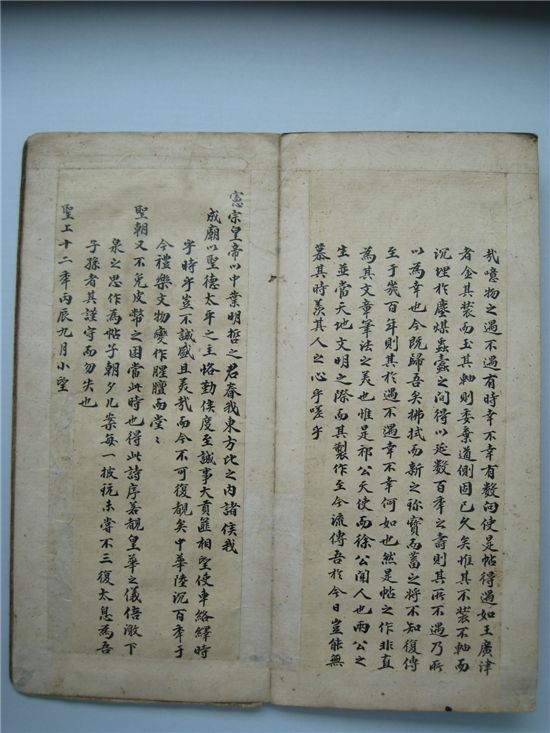 哉噫物之遇不遇有時幸不幸有數向使是帖得遇如王廣津
者金其裝而玉其軸則委棄道側固已久矣惟其不裝不軸而
沉埋於塵煤蟲蠹之間得以延數百年之壽則其所不遇乃所
以為幸也今既歸吾矣拂拭而新之祢寶而蓄之將不知復傳
至于幾百年則其於遇不遇幸不幸何如也然是帖之作非直
為其文章筆法之美也惟是祁公天使而徐公聞人也兩公之
生並當天地文明之際而其製作至今流傳吾於今日豈能無
慕其時羨其人之心乎嗟乎
憲宗皇帝以中業明哲之君眷我東方比之內諸侯我
成廟以聖德太平之主恪勤侯度至誠事大貢篚相望使車絡繹時
乎時乎豈不誠盛且美哉而今不可復覩矣中華陸沉百年于
今禮樂文物變作腥膻而堂〻
聖朝又不免皮幣之困當此時也得此詩序若覩皇華之儀倍激下
泉之思作為帖子朝夕几案每一披玩未嘗不三復太息為吾
子孫者其謹守而勿失也
聖上十二年丙辰九月小望